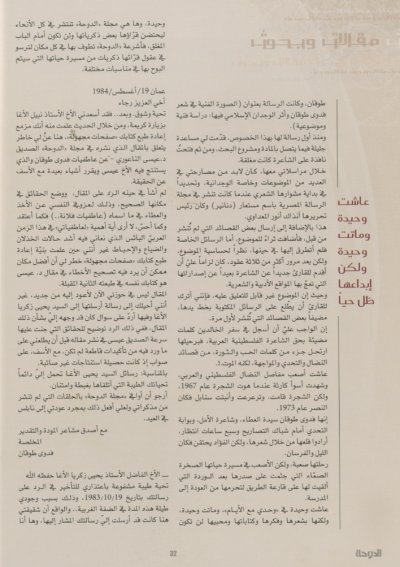 مقالات وبحوث
عاشت
وحيدة
وماتت
وحيدة
ولكن
إبداعها
ظل حياً
طوقان، وكانت الرسالة بعنوان (الصورة الفنية في شعر
فدوى طوقان وأثر الوجدان الإسلامي فيها: دراسة فنية
وموضوعية)
ومنذ أول رسالة لها بهذا الخصوص، قدّمت لي مساعدة
جليلة فيما يتصل بالمادة ومشروع البحث. ومن ثم فتحتُ
نافذة على الشاعرة كانت مغلقة.
خلال مراسلاتي معها، كان لابد من مصارحتي في
العديد من الموضوعات وخاصة الوجدانية، وتحديداً
في بداية مشوارها الشعري عندما كانت تنشر في مجلة
الرسالة المصرية باسم مستعار (دنانير) وكان رئيس
تحريرها آنذاك أنور المعداوي.
هذا بالإضافة إلى إرسال بعض القصائد التي لم تُنشر
من قبل، فأضافت ثراءً للموضوع. أما الرسائل الخاصة
فلم أتطرق إليها في حينها، نظراً لحساسية الموضوع.
ولكن بعد مرور أكثر من ثلاثة عقود، كان لزاماً علي أن
أقدم للقارئ جديداً عن الشاعرة بعيداً عن إصداراتها
التي تعجّ بها المواقع الأدبية والشعرية.
وحيث إن الموضوع غير قابل للتعليق عليه، فإنني أترك
للقارئ أن يطلع على الرسائل المكتوبة بخط يدها،
مضيفاً بعض القصائد التي تُنشر لأول مرة.
إن الواجب عليّ أن أسجل في سفر الخالدين كلمات
مضيئة بحق الشاعرة الفلسطينية العربية، فبرحيلها
ارتحل جزء من كلمات الحب والثورة، من قصائد
النضال والتحدي والمواجهة، لكنه الموت..!
عاشت أصعب مفاصل النضال الفلسطيني والعربي،
وشهدت أسوأ كارثة عندما هوت الشجرة عام 1967،
ولكن الشجرة قامت، وترعرعت وأنبتت سنابل فكان
النصر عام 1973.
إنها فدوى طوقان سيدة العطاء، وشاعرة الأمل، وبوابة
التحدي أمام شباك التصاريح وسبع ساعات انتظار.
أرادوا قلعها من خلال شعرها، ولكن الفؤاد يحتقن فكان
الليل والفرسان.
رحلتها صعبة، ولكن الأصعب في مسيرة حياتها الصخرة
الصمّاء التي جثمت على صدرها بعد الوردة التي
ألقيت لها على قارعة الطريق لتحرمها من العودة إلى
المدرسة.
عاشت وحيدة في «وحدي مع الأيام»، وماتت وحيدة،
ولكنها بشعرها وفكرها وكتاباتها ومحبيها لن تكون
وحيدة، وها هي مجلة «الدوحة» تنتشر في كل الأنحاء
ليحتضن قرّاؤها بعض ذكرياتها ولن تكون أمام الباب
المغلق، فأشرعة «الدوحة» تطوف بها في كل مكان لترسو
في عقول قرّائها ذكريات من مسيرة حياتها التي سيتم
البوح بها في مناسبات مختلفة.
عمان 19/أغسطس/1984
أخي العزيز رجاء
تحية وشوق. وبعد.. فقد أسعدني الأخ الأستاذ نبيل الآغا
بزيارة كريمة، ومن خلال الحديث علمت منه أنك مزمع
إعادة طبع كتابك «صفحات مجهولة»، هنا عنّ لي خاطر
يتعلق بالمقال الذي نشره في مجلة «الدوحة» الصديق
د. عيسى الناعوري -عن عاطفيات فدوى طوقان والذي
يستنتج فيه الأخ عيسى ويقرر أشياء بعيدة مع الأسف
عن الحقيقة.
لم أشأ في حينه الرد على المقال، ووضع الحقائق في
مكانها الصحيح، وذلك لعزوفي النفسي عن الأخذ
والعطاء في ما اسماه (عاطفيات فلانة..) فكما أعتقد
وكما أحسّ، لا أرى أية أهمية (لعاطفياتي) في هذا الزمن
العربي البائس الذي نعاني فيه أشد حالات الخذلان
والضياع والإحباط. غير أنني حين علمت بنيّة إعادة
طبع كتابك «صفحات مجهولة»، خطر لي أن أفضل مكان
ممكن أن يرد فيه تصحيح الأخطاء في مقال د. عيسى
هو كتابك نفسه في طبعته الثانية المقبلة.
المقال ليس في حوزتي الآن لأعود إليه من جديد. غير
أنني أحيلك إلى رسالة أرسلتها إلى السيد يحيى زكريا
الآغا وفيها أردّ على سؤال كان قد وجهه إليّ بشأن ذلك
المقال. ففي ذلك الرد توضيح للحقائق التي جنت عليها
سرعة الصديق عيسى في نشر مقاله قبل أن يطلعني على
ما ورد فيه من تأكيدات قاطعة لم تكن، مع الأسف، على
صواب إذ كانت حصيلة استنتاجات غير صائبة.
بالمناسبة: رسائل السيد يحيى الآغا تحمل إليّ دائماً
تحياتك الطيبة التي أتلقاها بغبطة وامتنان.
أرجو أن أوافي «مجلة الدوحة» بالحلقات التي لم تنشر
من مذكراتي ولعلي أفعل ذلك بمجرد عودتي إلى نابلس
في العيد.
مع أصدق مشاعر المودة والتقدير
المخلصة
فدوى طوقان
.... الأخ الفاضل الأستاذ يحيى زكريا الآغا حفظه الله
تحية طيبة مشفوعة باعتذاري للتأخير في الرد على
رسالتك بتاريخ 1983/10/19، وذلك بسبب وجودي
طيلة هذه المدة في الضفة الغربية.. والواقع أن شقيقتي
هنا كانت قد أرسلت إليّ رسالتك المشار إليها، وها أنا
32
الدوحة